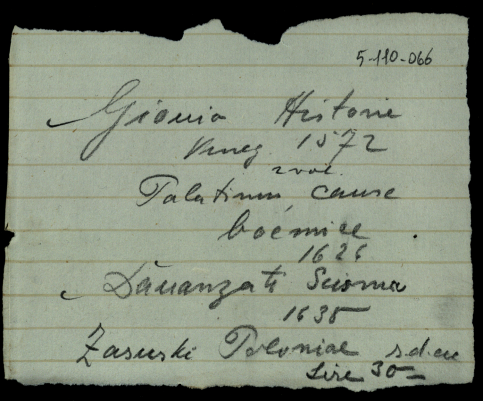 5-110-066
Giovio Historie
Veneg. 1572
2 vol.
Palatinus cause
boémice
1626
Davanzati Scisma
1638
Zasuski Poloniae s.d.
Lire 30=